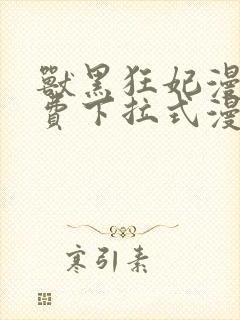 獸黑狂妃漫
費下拉式漫
寒引素